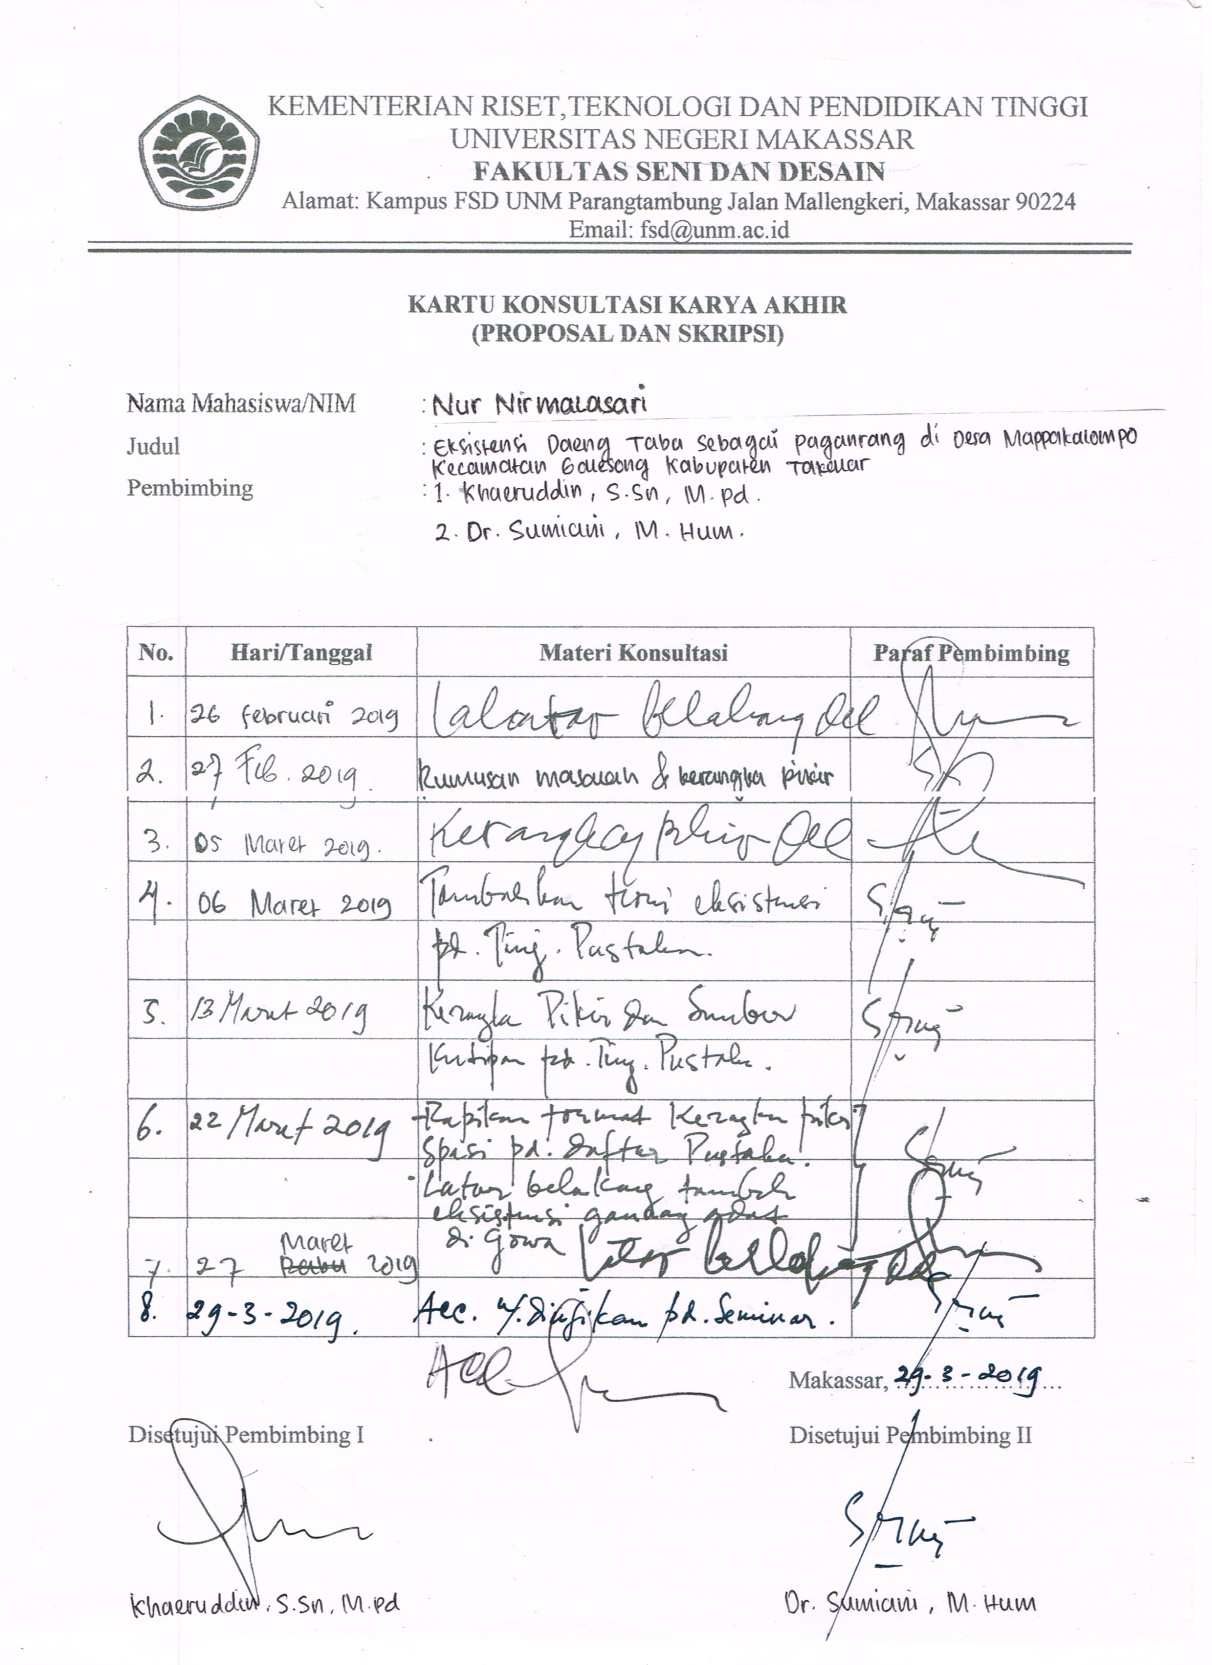 KEMENTERIAN RISET,TEKNOLOGI DAN PENDIDIKAN TINGGI
UNIVERSITAS NEGERI MAKASSAR
FAKULTAS SENI DAN DESAIN
Alamat: Kampus FSD UNM Parangtambung Jalan Mallengkeri, Makassar 90224
Email: fsd@unm.ac.id
KARTU KONSULTASI KARYA AKHIR
(PROPOSAL DAN SKRIPSI)
Nama Mahasiswa/NIM : Nur Nirmalasari
Judul : Eksistensi Daeng Taba sebagai paganrang di Desa Mappakalompo
Kecamatan Galesong Kabupaten Takalar
Pembimbing : 1. Khaeruddin, S.Sn, M.pd.
2. Dr. Sumiani, M. Hum.
No. Hari/Tanggal Materi Konsultasi Paraf Pembimbing
1. 26 februari 2019 Latar Belakang
2. 27 Feb. 2019 Rumusan masalah & kerangka pikir
3. 05 Maret 2019. Kerangka pikir
4. 06 Maret 2019 Tambahkan teori eksistensi
pd. Tinj. Pustaka.
5. 13 Maret 2019 Kerangka Pikir dan Sumber
Kutipan pd. Tinj. Pustaka.
6. 22 Maret 2019 -Rapikan format Kerangka pikir
Spasi pd. daftar Pustaka.
Latar belakang tambah
eksistensi gandang adat
di Gowa
Maret
7. 27 2019 Latar Belakang
8. 29-3-2019. Acc. u/. diujikan pd. Seminar.
Acc
Makassar, 29-3-2019
Disetujui Pembimbing I Disetujui Pembimbing II
Khaeruddin, S.Sn, M.pd Dr. Sumiani, M. Hum